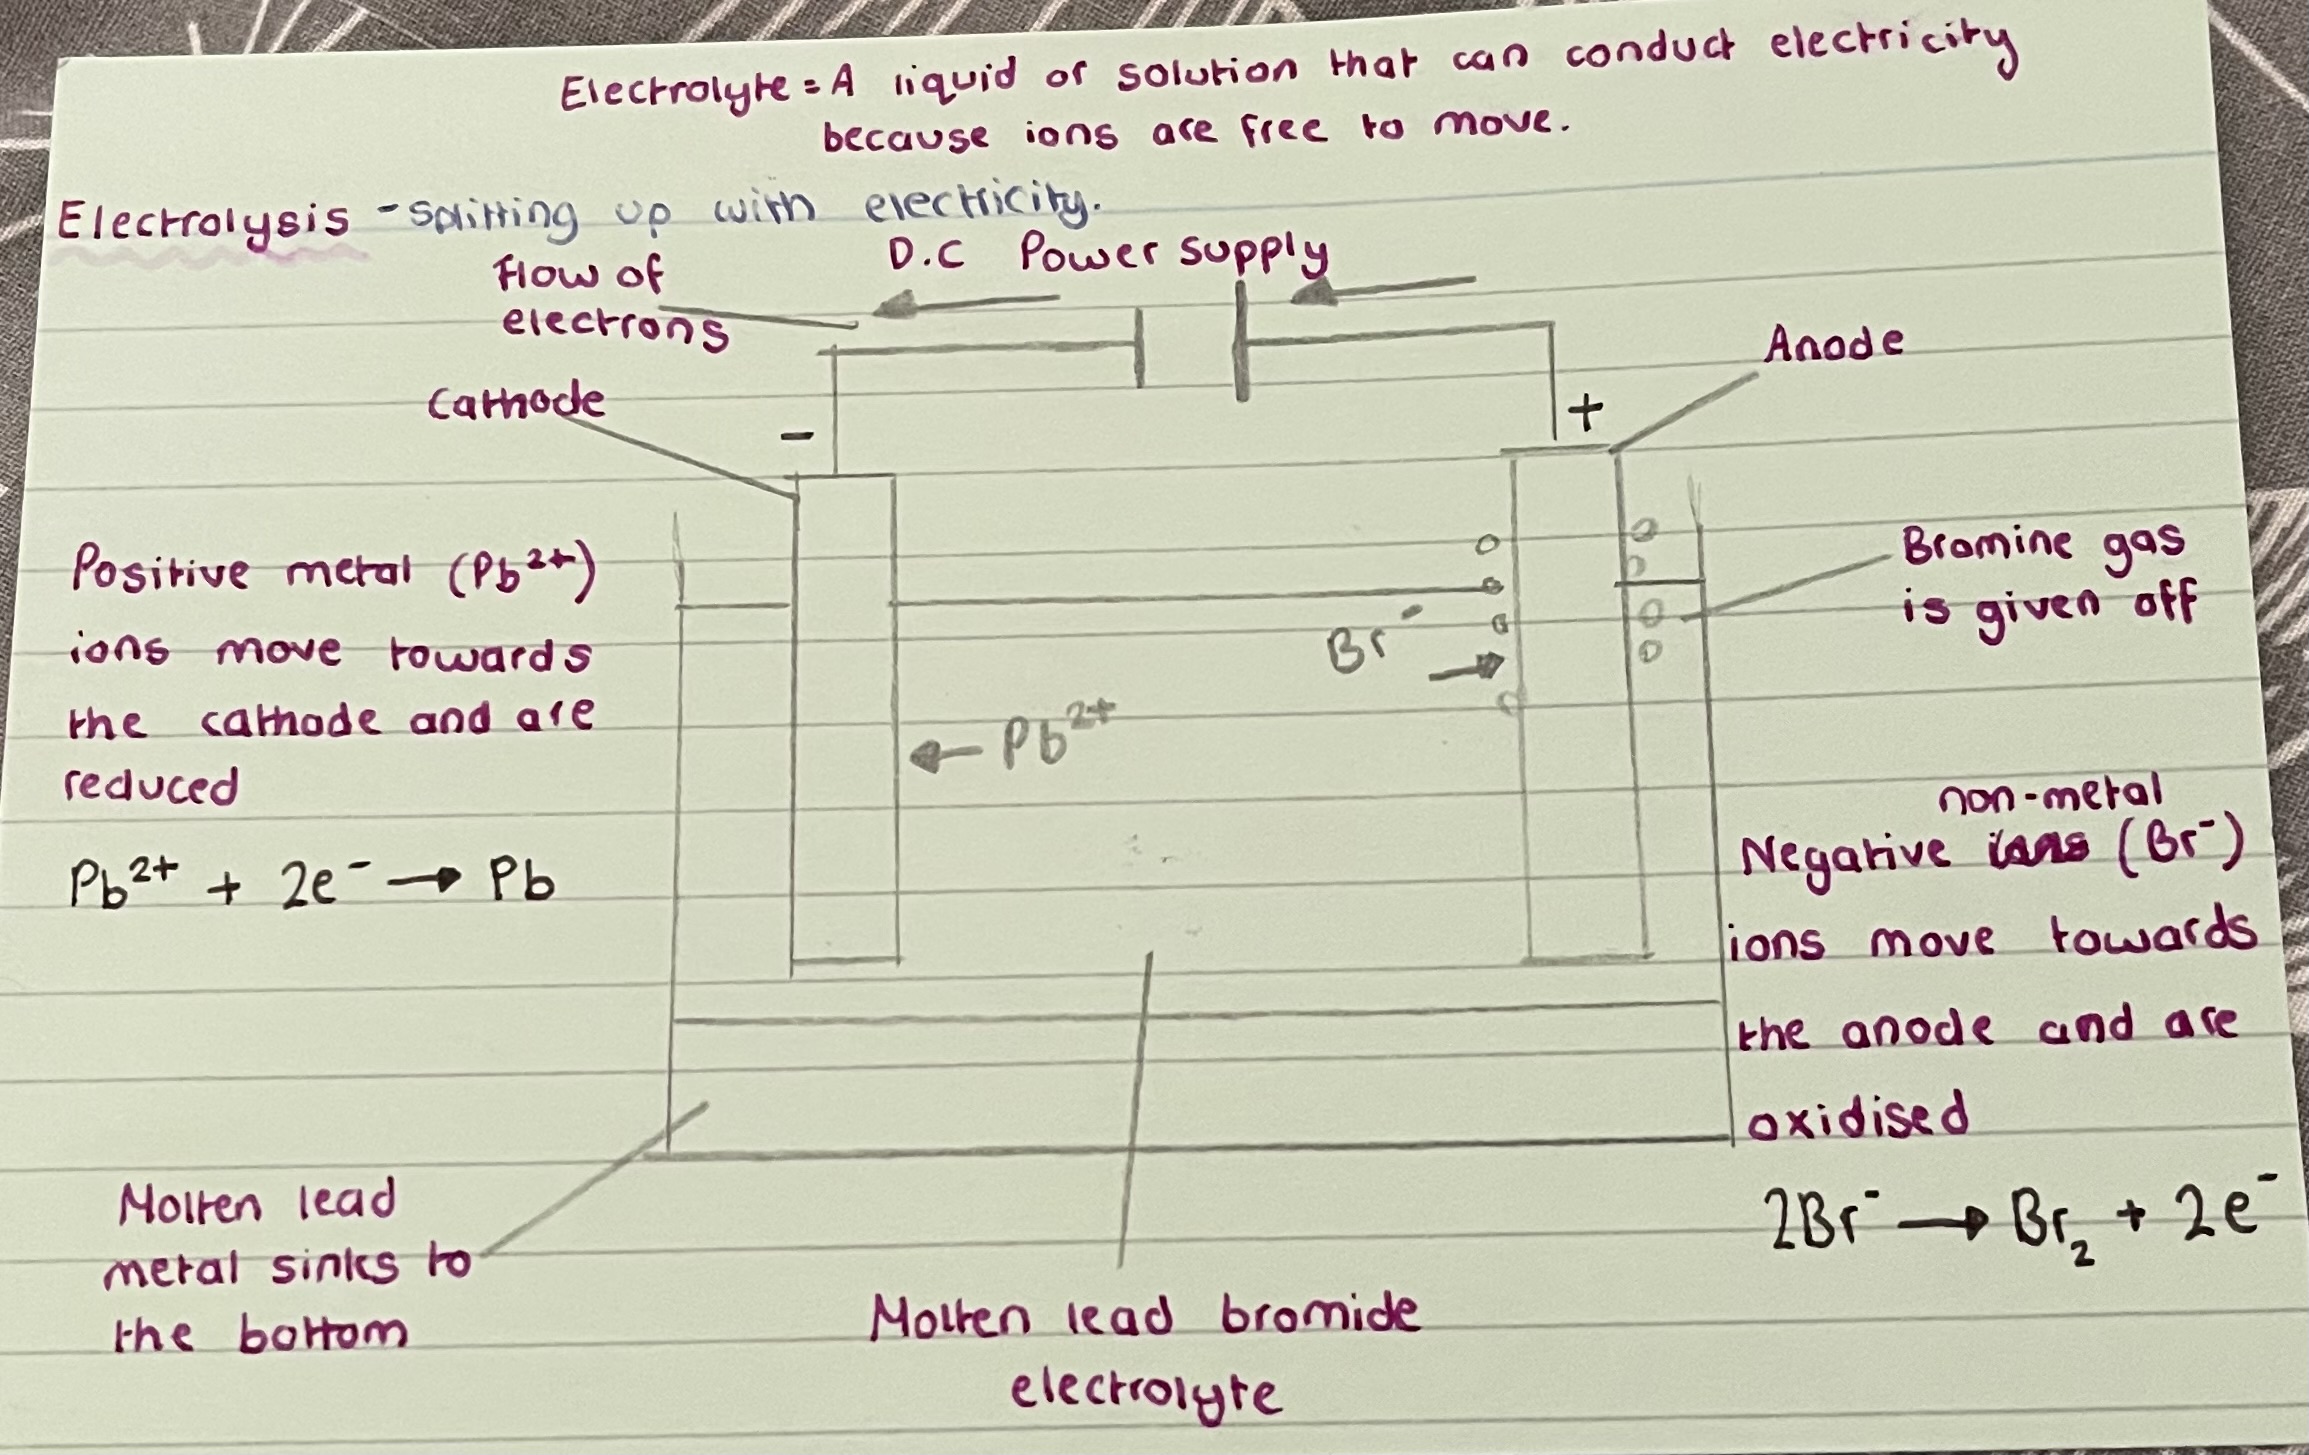 Electrolyte = A liquid or solution that can conduct electricity
because ions are free to move.
Electrolysis - splitting up with electricity.
Flow of
electrons
D.C Power supply
Cathode
Anode
-
+
Positive metal (Pb²⁺)
ions move towards
the cathode and are
reduced
Pb²⁺ + 2e⁻ → Pb
Br⁻ →
← Pb²⁺
Bromine gas
is given off
non-metal
Negative (Br⁻)
ions move towards
the anode and are
oxidised
2Br⁻ → Br₂ + 2e⁻
Molten lead
metal sinks to
the bottom
Molten lead bromide
electrolyte